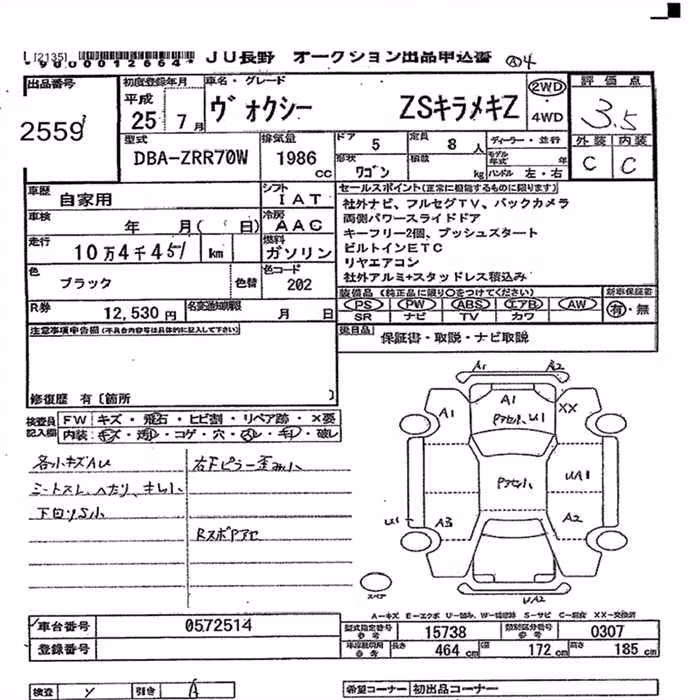 [2135]
*9000012664*
JU長野 オークション出品申込書
A4
出品番号
2559
初度登録年月
平成
25 7月
車名・グレード
ヴォクシー ZSキラメキZ
2WD
・
4WD
評価点
3.5
外装 内装
C C
型式
DBA-ZRR70W
排気量
1986
cc
ドア 5
定員 8 人
ディーラー・並行
形状 ワゴン
積載 kg
モデル年式 年
ハンドル 左・右
車歴 自家用
シフト IAT
車検 年 月( 日)
冷房 AAC
走行 10万4千451 km
燃料 ガソリン
色 ブラック 色替
色コード 202
R券 12,530 円
名変通知期限 月 日
セールスポイント(正常に機能するものに限ります)
社外ナビ、フルセグTV、バックカメラ
両側パワースライドドア
キーフリー2個、プッシュスタート
ビルトインETC
リヤエアコン
社外アルミ+スタッドレス積込み
装備品 (純正品に限り○をつけてください) 新車保証書
PS PW ABS エアB AW 有・無
SR ナビ TV カワ
後日品 保証書・取説・ナビ取説
注意事項申告欄(不具合内容等は具体的に記入して下さい)
修復歴 有〔箇所 〕
検査員記入欄
FW キズ・飛石・ヒビ割・リペア跡・×要
内装: キズ・汚レ・コゲ・穴・スレ・キレ・破レ
各小キズAU
シートスレ、ヘタリ、キレ小
下回りS小
右Fピラー歪み小
RスポPアセ
A1 A2
A1 A1 XX
Pアセ小、U1
Pアセ小
UA1
U1 A3 A2
UA2
スペア
A-キズ E-エクボ U-凹み W-補修跡 S-サビ C-腐食 XX-交換済
車台番号 0572514
登録番号
型式指定番号 参考 15738
類別区分番号 参考 0307
車庫証明用 参考 長さ 464 cm 幅 172 cm 高さ 185 cm
検査 引き A
希望コーナー 初出品コーナー